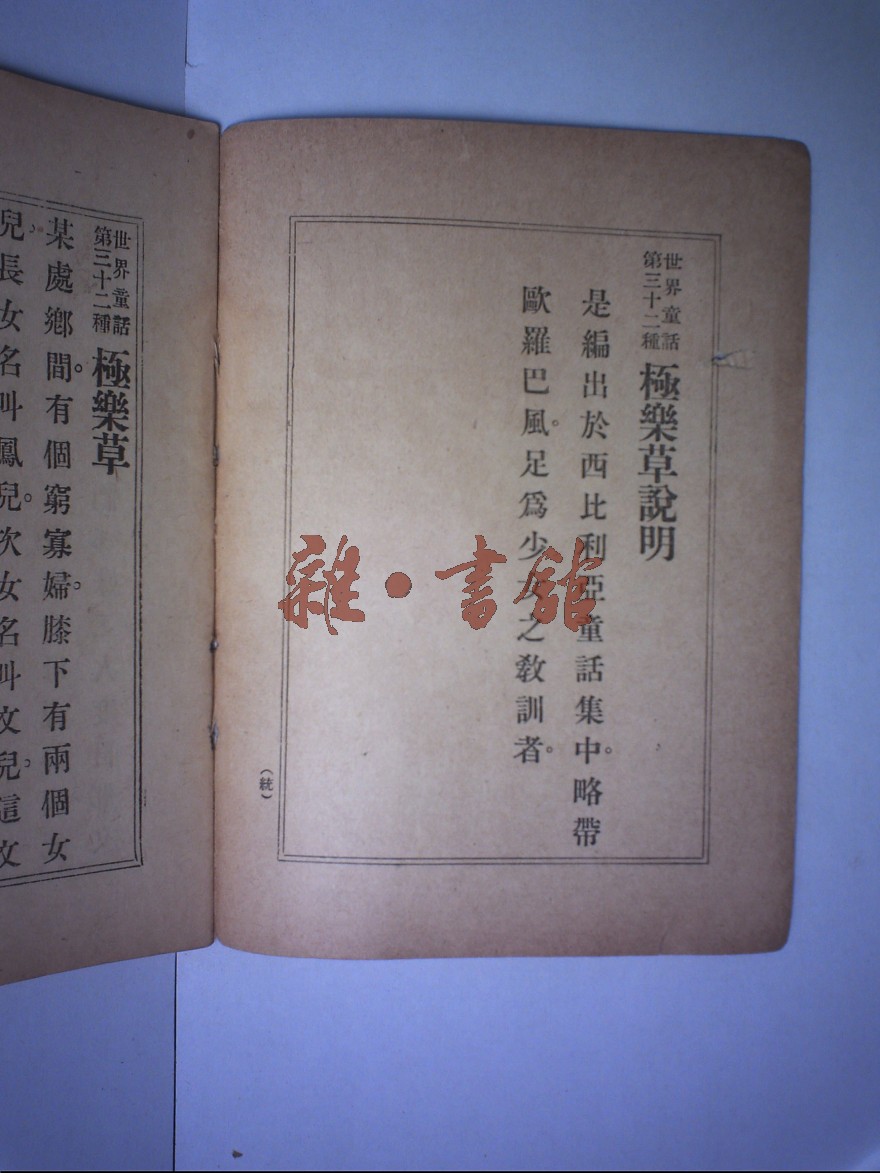 世界童話
第三十二種
極樂草說明
是編出於西比利亞童話集中。略帶
歐羅巴風。足爲少女之敎訓者。
（統）
世界童話
第三十二種
極樂草
某處鄉間。有個窮寡婦。膝下有兩個女
兒。長女名叫鳳兒。次女名叫文兒。這文
雜·書館